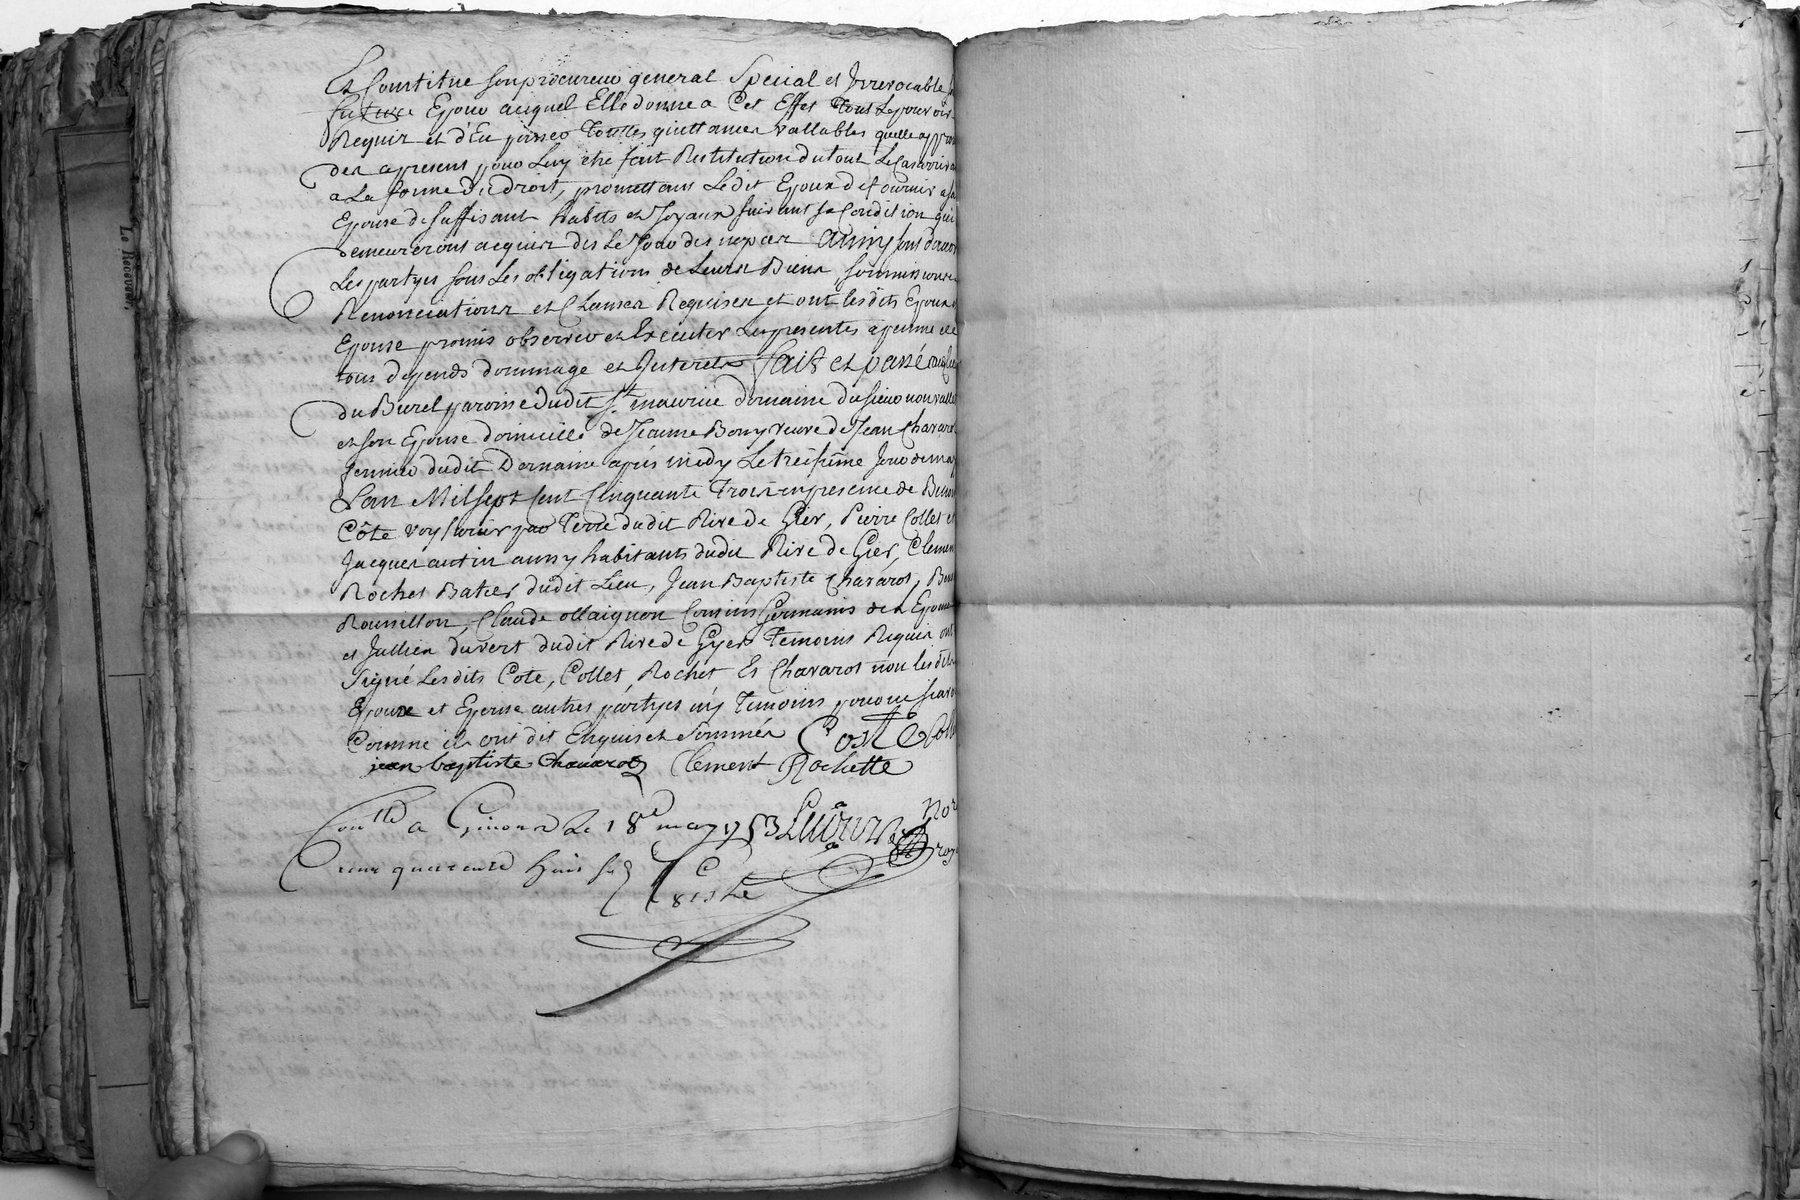 Et Constitue son procureur general Special et Irrevocable
future Epoux auquel Elle donne a Cet Effet Tout Le pouvoir
Requis et d'En passer Touttes quittances vallables quelle
des apresent pour Luy être fait Restitution du tout Le Cas
a La forme du Droit, promettant Ledit Epoux de fournir a
Epouse de suffisant habits et Joyaux suivant sa Condition qui
demeureront acquis des Le Jour des nopces ainsy
Les partyes sous Les obligations de Leurs Biens, soumissions
Renonciations et Clauses Requises et ont lesdits Epoux
Epouse promis observer et Executer Les presentes a peinne de
tous depends dommage et Interets fait et passé
du Burel paroisse dudit St. maurice domaine du sieur
et son Epouse domicille de Jeanne Bony veuve de Jean Chavarot
fermier dudit Domaine après midy Le treisième Jour de may
L'an Mil sept Cent Cinquante Trois en presence de
Côte voyturier par Terre dudit Rive de Gier, Pierre Collet et
Jacques antin aussy habitants dudit Rive de Gier, Clement
Rochet Batier dudit Lieu, Jean Baptiste Chavarot,
Roussillon, Claude Cousins Germains des Epoux
et Jullien duvert dudit Rive de Gyer Temoins Requis ont
Signé Lesdits Cote, Collet, Rochet Et Chavarot non lesdits
Epoux et Epouse autres partyes ny Temoins pour ne
Comme ils ont dit Enquis et Sommés Cost
jean baptiste Chavarot Clement Rochette
Conllé a Le 18e may 1753
quarante huit